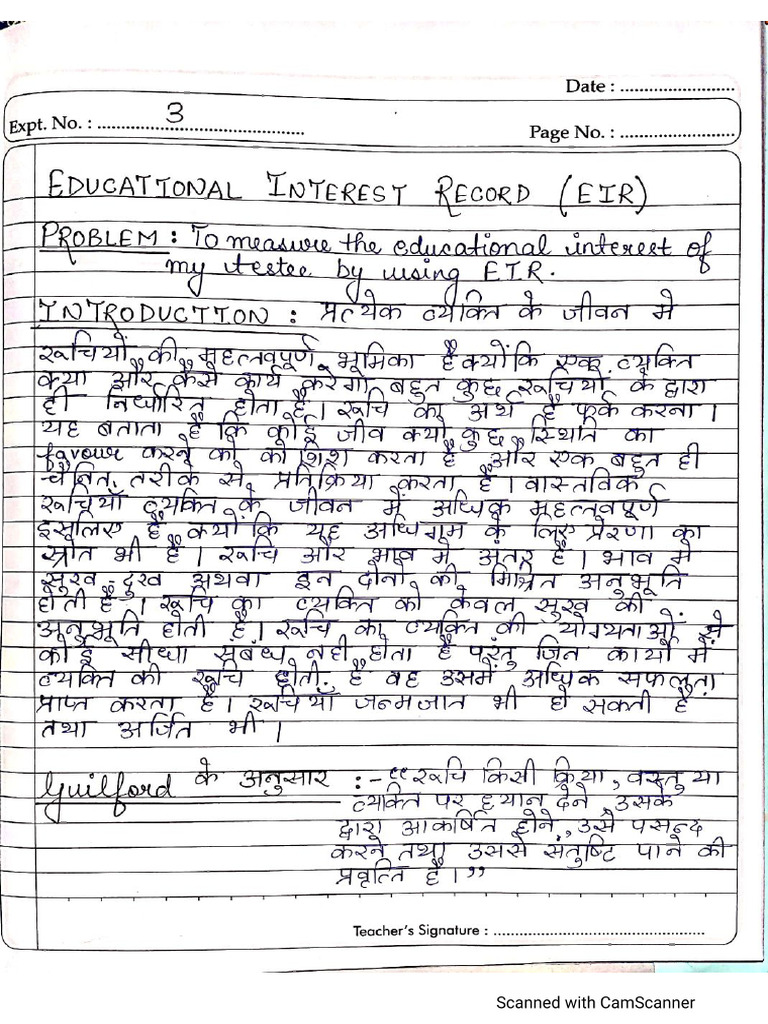 Date : ........................
Expt. No. : 3
Page No. : ........................
EDUCATIONAL INTEREST RECORD (EIR)
PROBLEM : To measure the educational interest of
my testee by using EIR.
INTRODUCTION : प्रत्येक व्यक्ति के जीवन मे
रूचियों की महत्तवपूर्ण भूमिका है क्योंकि एक व्यक्ति
क्या और कैसे कार्य करेगा बहुत कुछ रूचियों के द्वारा
ही निर्धारित होता है। रूचि का अर्थ है फर्क करना।
यह बताता है कि कोई जीव क्यों कुछ स्थिति का
favour करने की कोशिश करता है और एक बहुत ही
तरीके से प्रतिक्रिया करता है। वास्तविक
रूचियाँ व्यक्ति के जीवन में अधिक महत्तवपूर्ण
इसलिए है क्योंकि यह अधिगम के लिए प्रेरणा का
स्रोत भी है। रूचि और भाव में अंतर है। भाव में
सुख दुख अथवा इन दोनों की मिश्रित अनुभूति
होती है। रूचि का व्यक्ति को केवल सुख की
अनुभूति होती है। रूचि का व्यक्ति की योग्यताओं से
कोई सीधा संबंध नही होता है परंतु जिन कार्यो में
व्यक्ति की रूचि होती है वह उसमें अधिक सफलता
प्राप्त करता है। रूचियाँ जन्मजात भी हो सकती है
तथा अर्जित भी।
Guilford के अनुसार :- "रूचि किसी क्रिया, वस्तु या
व्यक्ति पर ध्यान देने, उसके
द्वारा आकर्षित होने, उसे पसन्द
करने तथा उससे संतुष्टि पाने की
प्रवृत्ति है।"
Teacher's Signature : ........................
Scanned with CamScanner